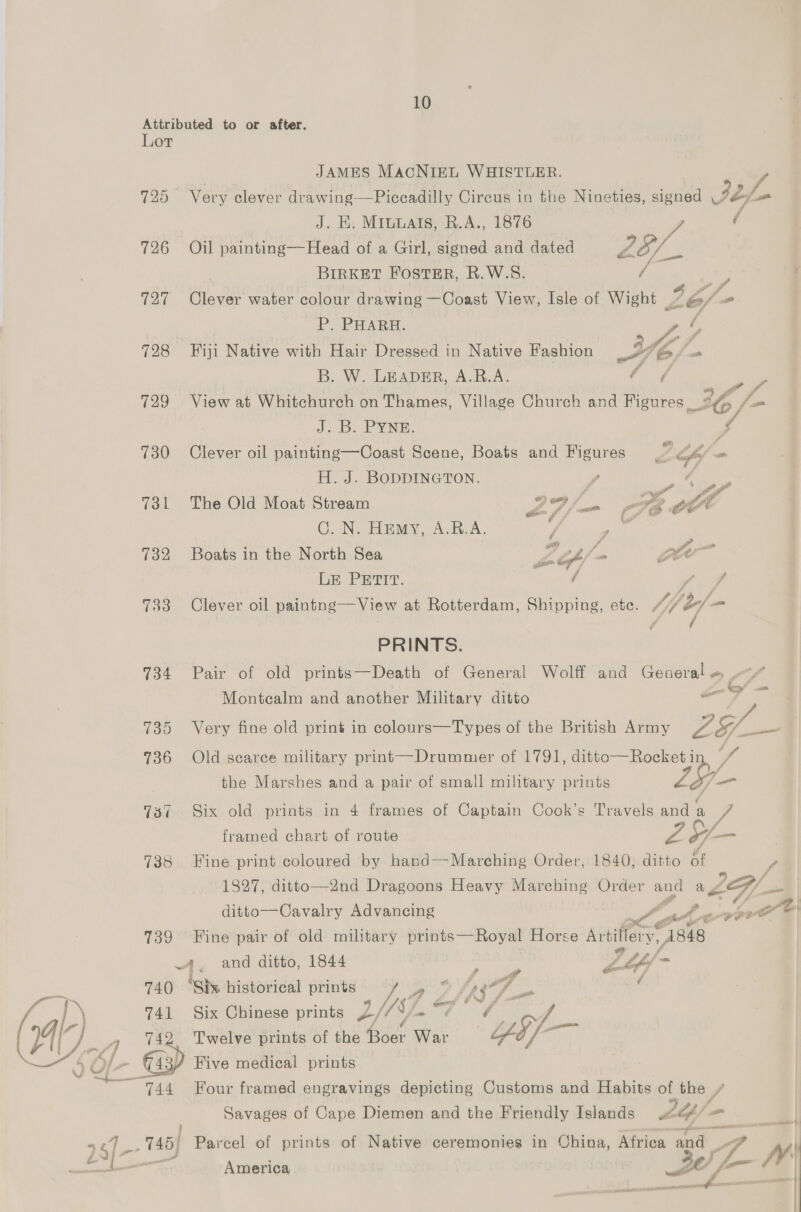 10
Attributed to or after.
Lot
JAMES MACNIEL WHISTLER.
725 Very clever drawing—Piccadilly Circus in the Nineties, signed
J. E. MILLAIS, R.A., 1876
726 Oil painting—Head of a Girl, signed and dated 28/-
BIRKET FOSTER, R.W.S.
727 Clever water colour drawing—Coast View, Isle of Wight 26/-
P. PHARH.
728 Fiji Native with Hair Dressed in Native Fashion
B. W. LEADER, A.R.A.
729 View at Whitchurch on Thames, Village Church and Figures
J. B. PYNE.
730 Clever oil painting—Coast Scene, Boats and Figures
H. J. BODDINGTON.
731 The Old Moat Stream 27/-
C. N. HEMY, A.R.A.
732 Boats in the North Sea
LE PETIT.
733 Clever oil paintng—View at Rotterdam, Shipping, etc.
PRINTS.
734 Pair of old prints—Death of General Wolff and General
Montcalm and another Military ditto
735 Very fine old print in colours—Types of the British Army 28/-
736 Old scarce military print—Drummer of 1791, ditto—Rocket in
the Marshes and a pair of small military prints
737 Six old prints in 4 frames of Captain Cook's Travels and a
framed chart of route
738 Fine print coloured by hand—Marching Order, 1840, ditto of
1827, ditto—2nd Dragoons Heavy Marching Order and a
ditto—Cavalry Advancing
739 Fine pair of old military prints—Royal Horse Artillery, 1848
and ditto, 1844
740 Six historical prints
741 Six Chinese prints
742 Twelve prints of the Boer War
743 Five medical prints
744 Four framed engravings depicting Customs and Habits of the
Savages of Cape Diemen and the Friendly Islands
745 Parcel of prints of Native ceremonies in China, Africa and
America